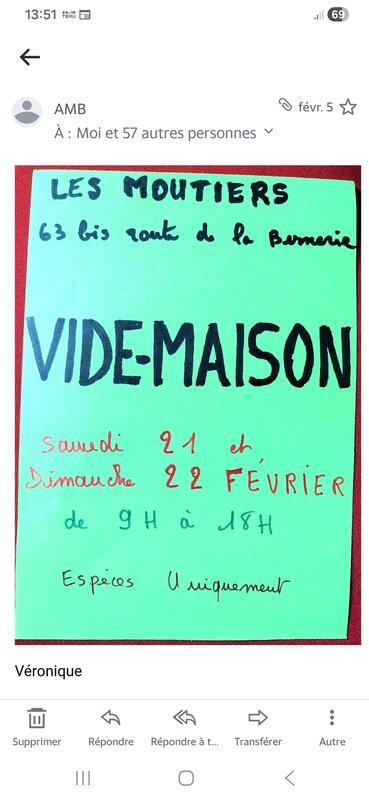 13:51
69
AMB
févr. 5
À : Moi et 57 autres personnes
LES MOUTIERS
63 bis route de la Bernerie
VIDE-MAISON
Samedi 21 et
Dimanche 22 FÉVRIER
de 9H à 18H
Espèces Uniquement
Véronique
Supprimer
Répondre
Répondre à t...
Transférer
Autre